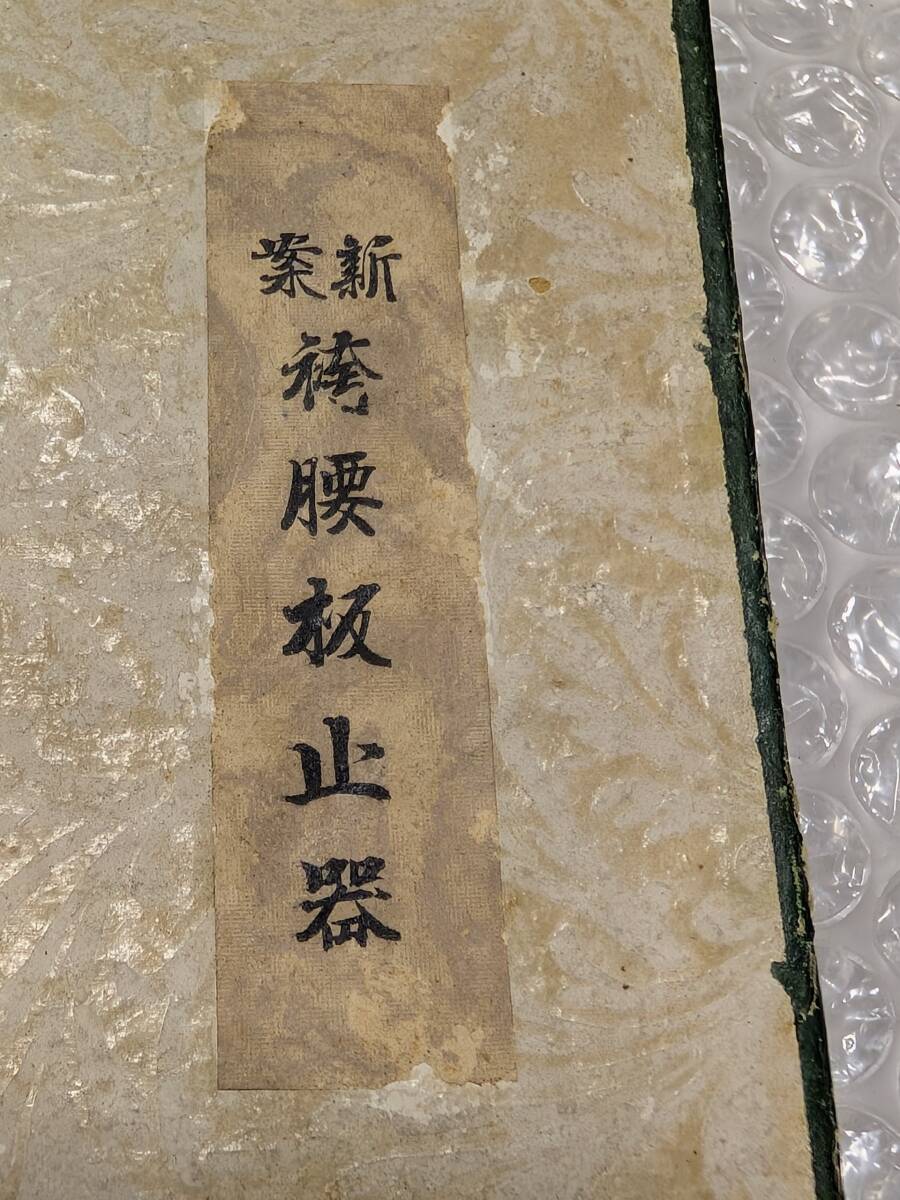 新案
袴腰板止器